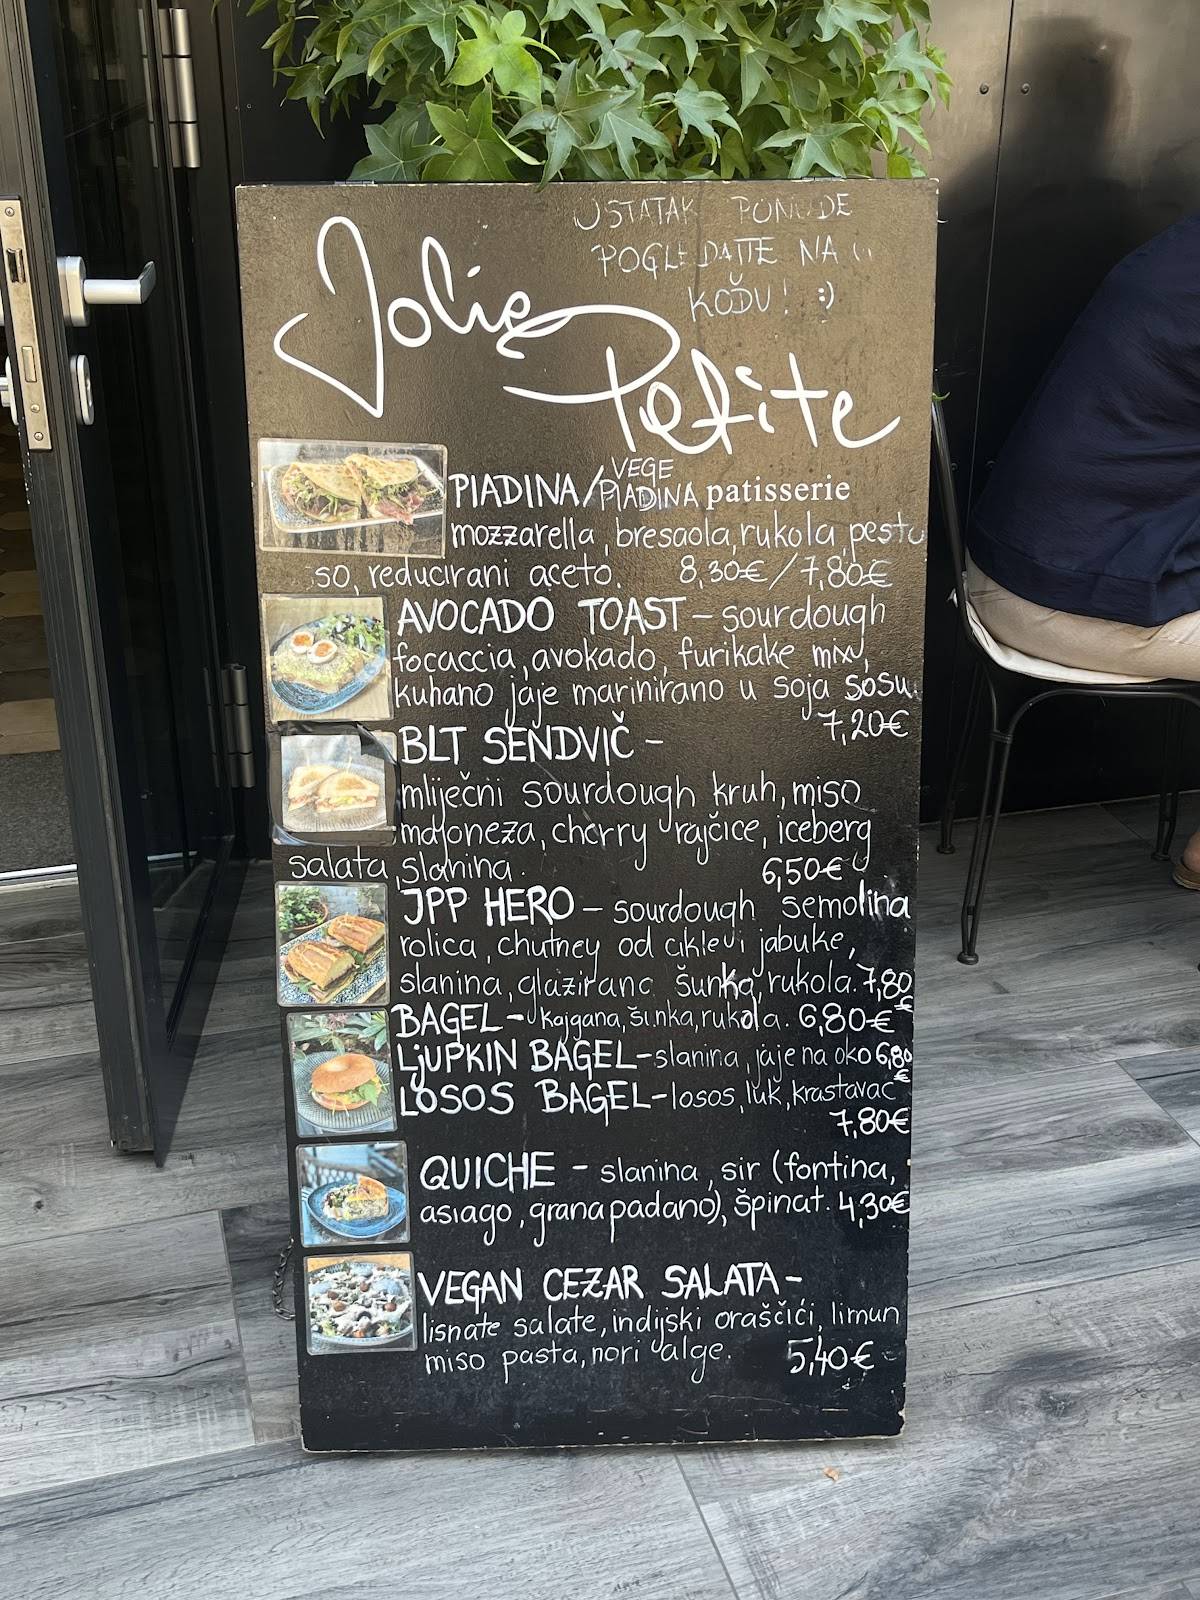 OSTATAK PONUDE
POGLEDAJTE NA
KODU! :)
Jolie
Petite
patisserie
PIADINA/VEGE PIADINA
mozzarella, bresaola, rukola, pesto
so, reducirani aceto. 8,30€/7,80€
AVOCADO TOAST - sourdough
focaccia, avokado, furikake mix,
kuhano jaje marinirano u soja sosu.
7,20€
BLT SENDVIČ -
mliječni sourdough kruh, miso
majoneza, cherry rajčice, iceberg
salata, slanina. 6,50€
JPP HERO - sourdough semolina
rolica, chutney od cikle i jabuke,
slanina, glazirana šunka, rukola. 7,80
€
BAGEL - kajgana, šunka, rukola. 6,80€
LJUPKIN BAGEL - slanina, jaje na oko 6,80
€
LOSOS BAGEL - losos, luk, krastavac
7,80€
QUICHE - slanina, sir (fontina,
asiago, grana padano), špinat. 4,30€
VEGAN CEZAR SALATA -
lisnate salate, indijski oraščići, limun
miso pasta, nori alge. 5,40€